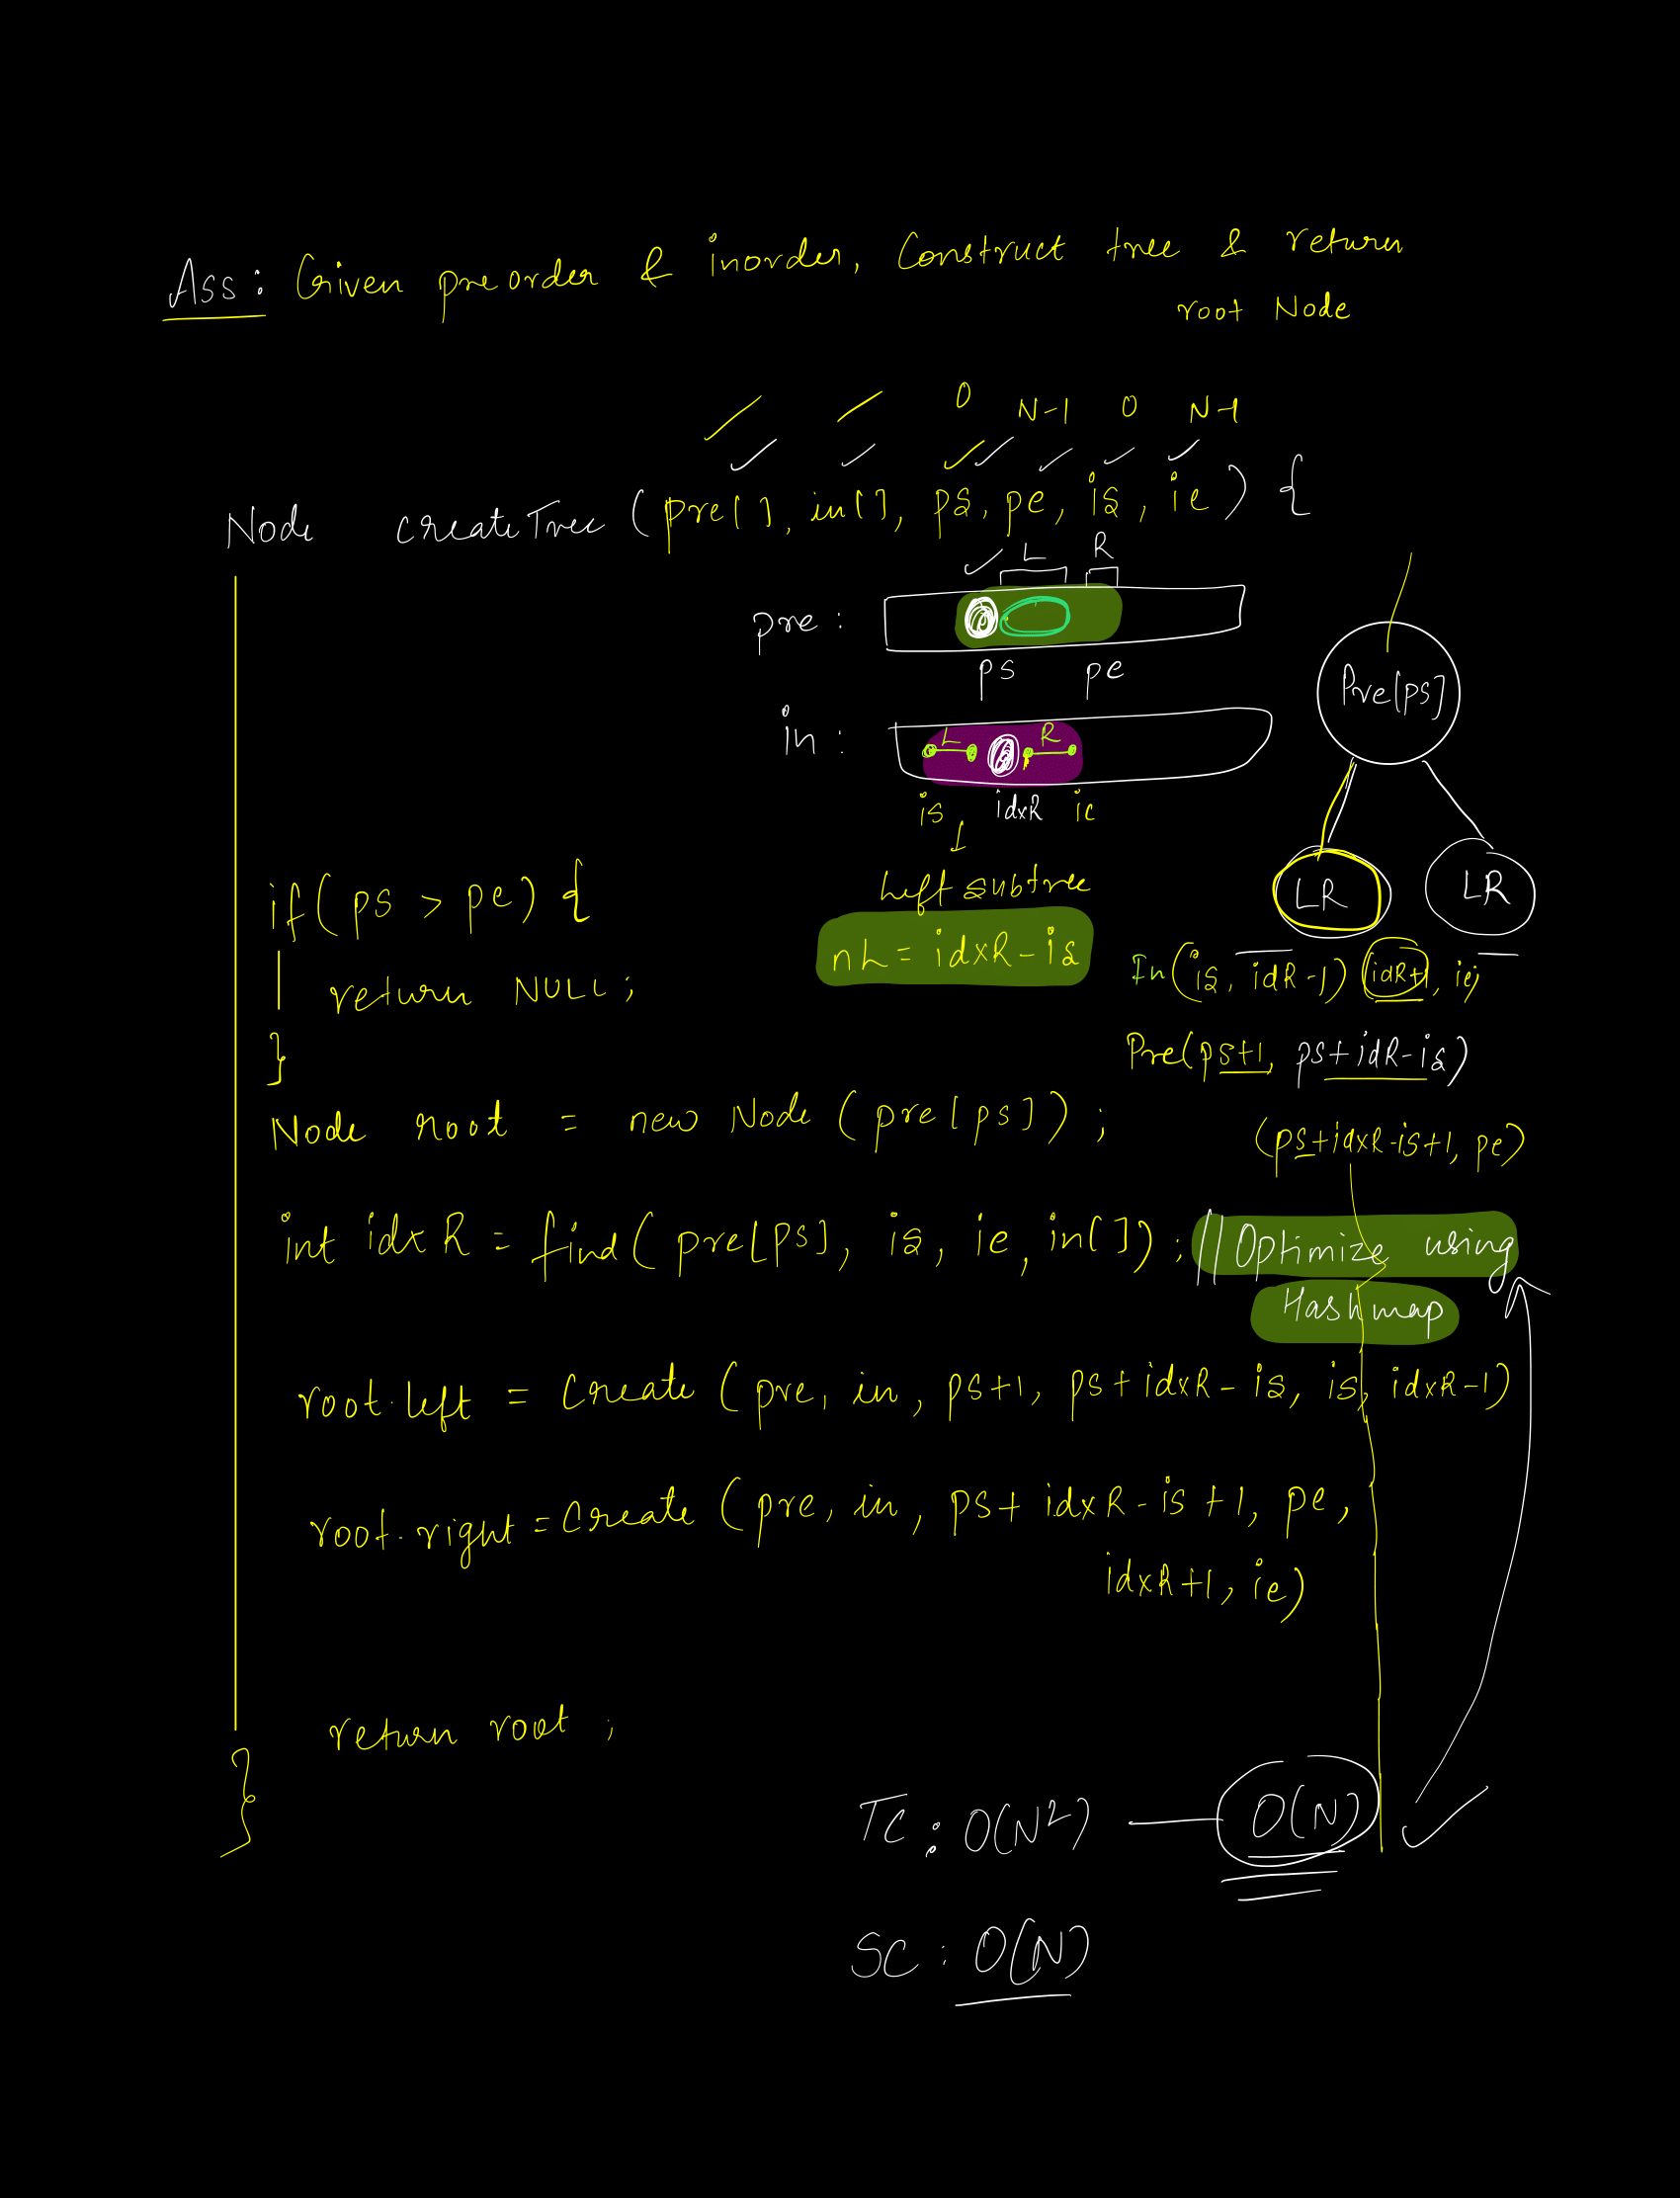 Ass: Given preorder & inorder, Construct tree & return
root Node
0 N-1 0 N-1
Node createTree (pre[], in[], ps, pe, is, ie) {
L R
pre:
ps pe
Pre[ps]
in:
L R
is idxR ie
Left subtree
LR LR
if(ps > pe) {
nL = idxR-is
In(is, idR-1) (idR+1, ie)
return NULL;
}
Pre(ps+1, ps+idR-is)
Node root = new Node (pre[ps]);
(ps+idxR-is+1, pe)
int idxR = find(pre[ps], is, ie, in[]); //Optimize using
Hashmap
root.left = Create (pre, in, ps+1, ps+idxR-is, is, idxR-1)
root.right = Create (pre, in, ps+idxR-is+1, pe,
idxR+1, ie)
return root;
}
TC: O(N²) — O(N)
SC: O(N)